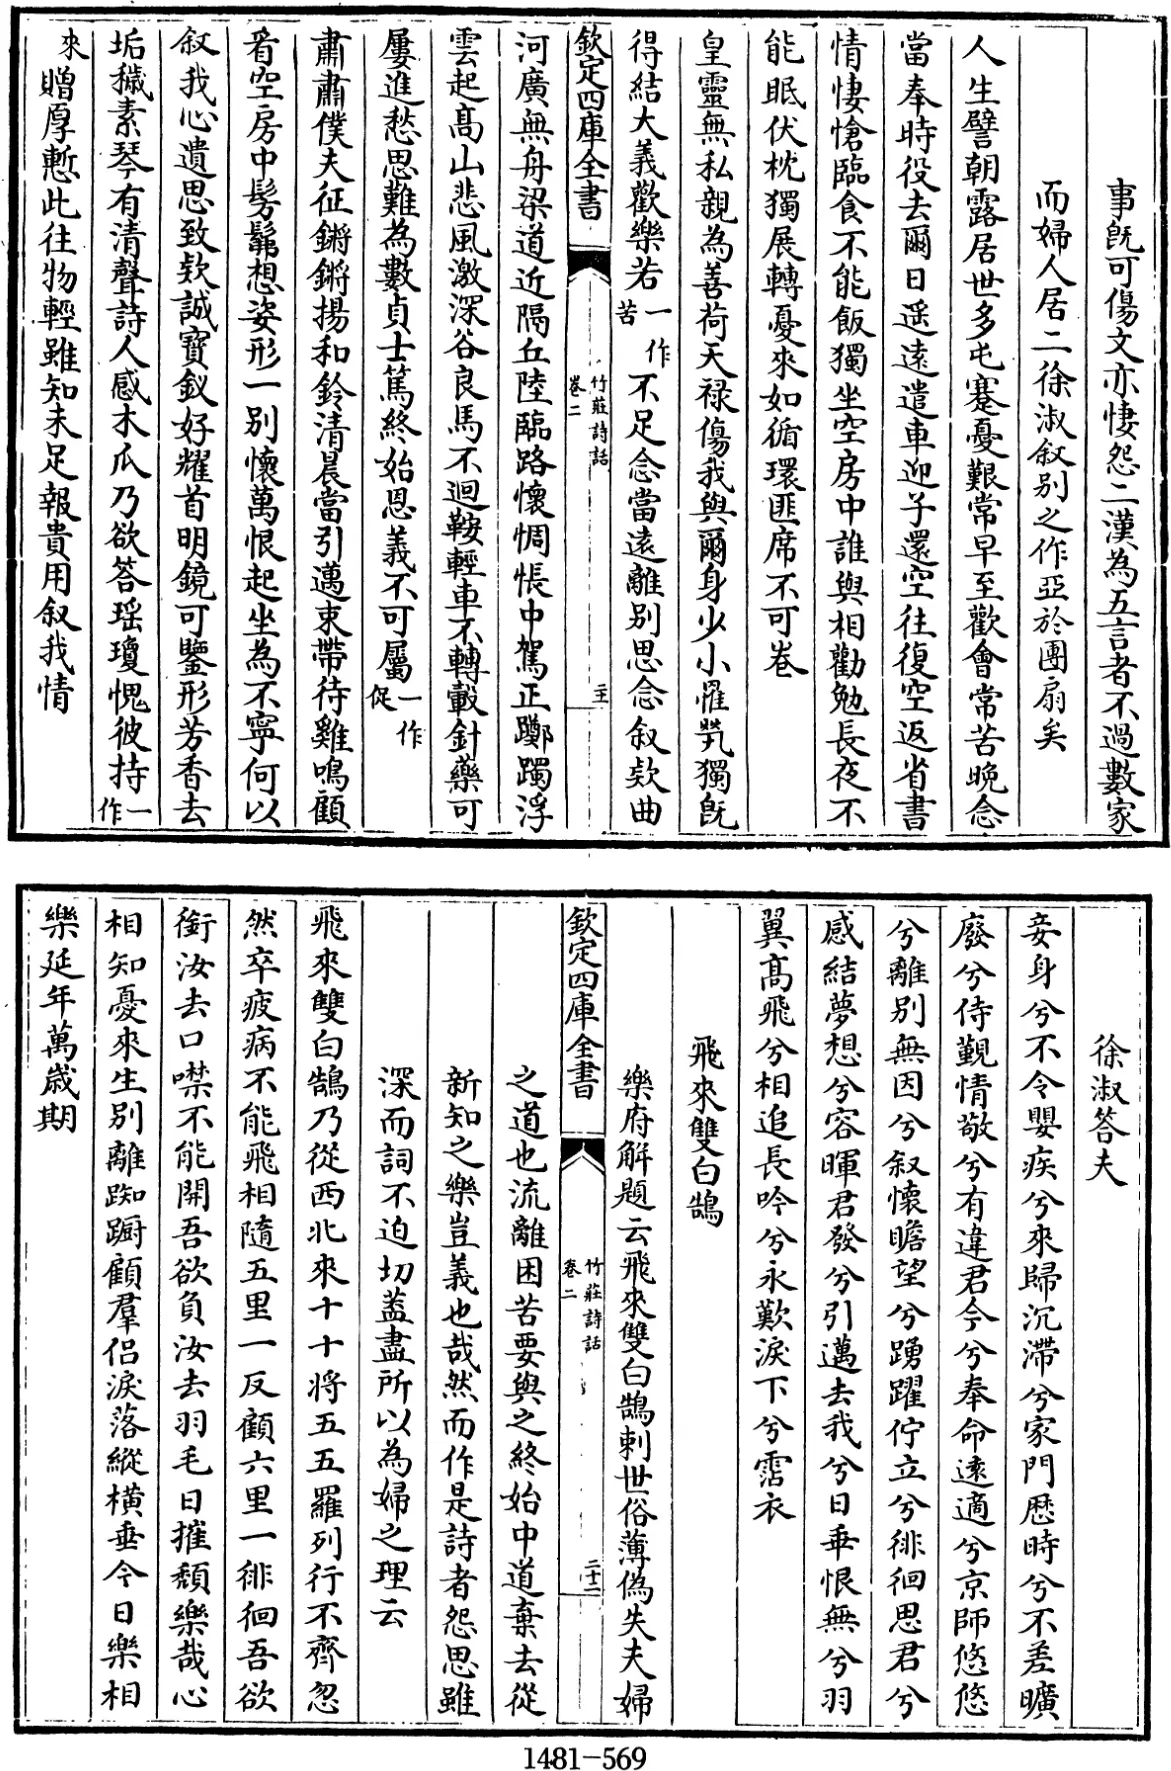 事既可傷文亦悽怨二漢為五言者不過數家
而婦人居二徐淑叙别之作亞於團扇矣
人生譬朝露居世多屯蹇憂艱常早至歡會常苦晚念
當奉時役去爾日遥遠遣車迎子還空往復空返省書
情悽愴臨食不能飯獨坐空房中誰與相勸勉長夜不
能眠伏枕獨展轉憂來如循環匪席不可卷
皇靈無私親為善荷天禄傷我與爾身少小罹煢獨既
得結大義歡樂若一作苦不足念當遠離别思念叙欵曲
欽定四庫全書
竹莊詩話
卷二
二十一
河廣無舟梁道近隔丘陸臨路懷惆悵中駕正躑躅浮
雲起髙山悲風激深谷良馬不迴鞍輕車不轉轂針藥可
屢進愁思難為數貞士篤終始恩義不可屬一作促
肅肅僕夫征鏘鏘揚和鈴清晨當引邁束帶待雞鳴顧
看空房中髣髴想姿形一别懷萬恨起坐為不寧何以
叙我心遺思致欵誠寶釵好耀首明鏡可鑒形芳香去
垢穢素琴有清聲詩人感木瓜乃欲答瑶瓊愧彼持一作
來贈厚慙此往物輕雖知未足報貴用叙我情
徐淑答夫
妾身兮不令嬰疾兮來歸沉滯兮家門歴時兮不差曠
廢兮侍覲情敬兮有違君今兮奉命逺適兮京師悠悠
兮離别無因兮叙懷瞻望兮踴躍佇立兮徘徊思君兮
感結夢想兮容暉君發兮引邁去我兮日乖恨無兮羽
翼髙飛兮相追長吟兮永歎淚下兮霑衣
飛來雙白鵠
樂府解題云飛來雙白鵠刺世俗薄偽失夫婦
欽定四庫全書
竹莊詩話
卷二
二十二
之道也流離困苦要與之終始中道棄去從
新知之樂豈義也哉然而作是詩者怨思雖
深而詞不迫切葢盡所以為婦之理云
飛來雙白鵠乃從西北來十十將五五羅列行不齊忽
然卒疲病不能飛相隨五里一反顧六里一徘徊吾欲
銜汝去口噤不能開吾欲負汝去羽毛日摧頹樂哉心
相知憂來生别離踟蹰顧羣侣淚落縱横垂今日樂相
樂延年萬歳期
1481-569